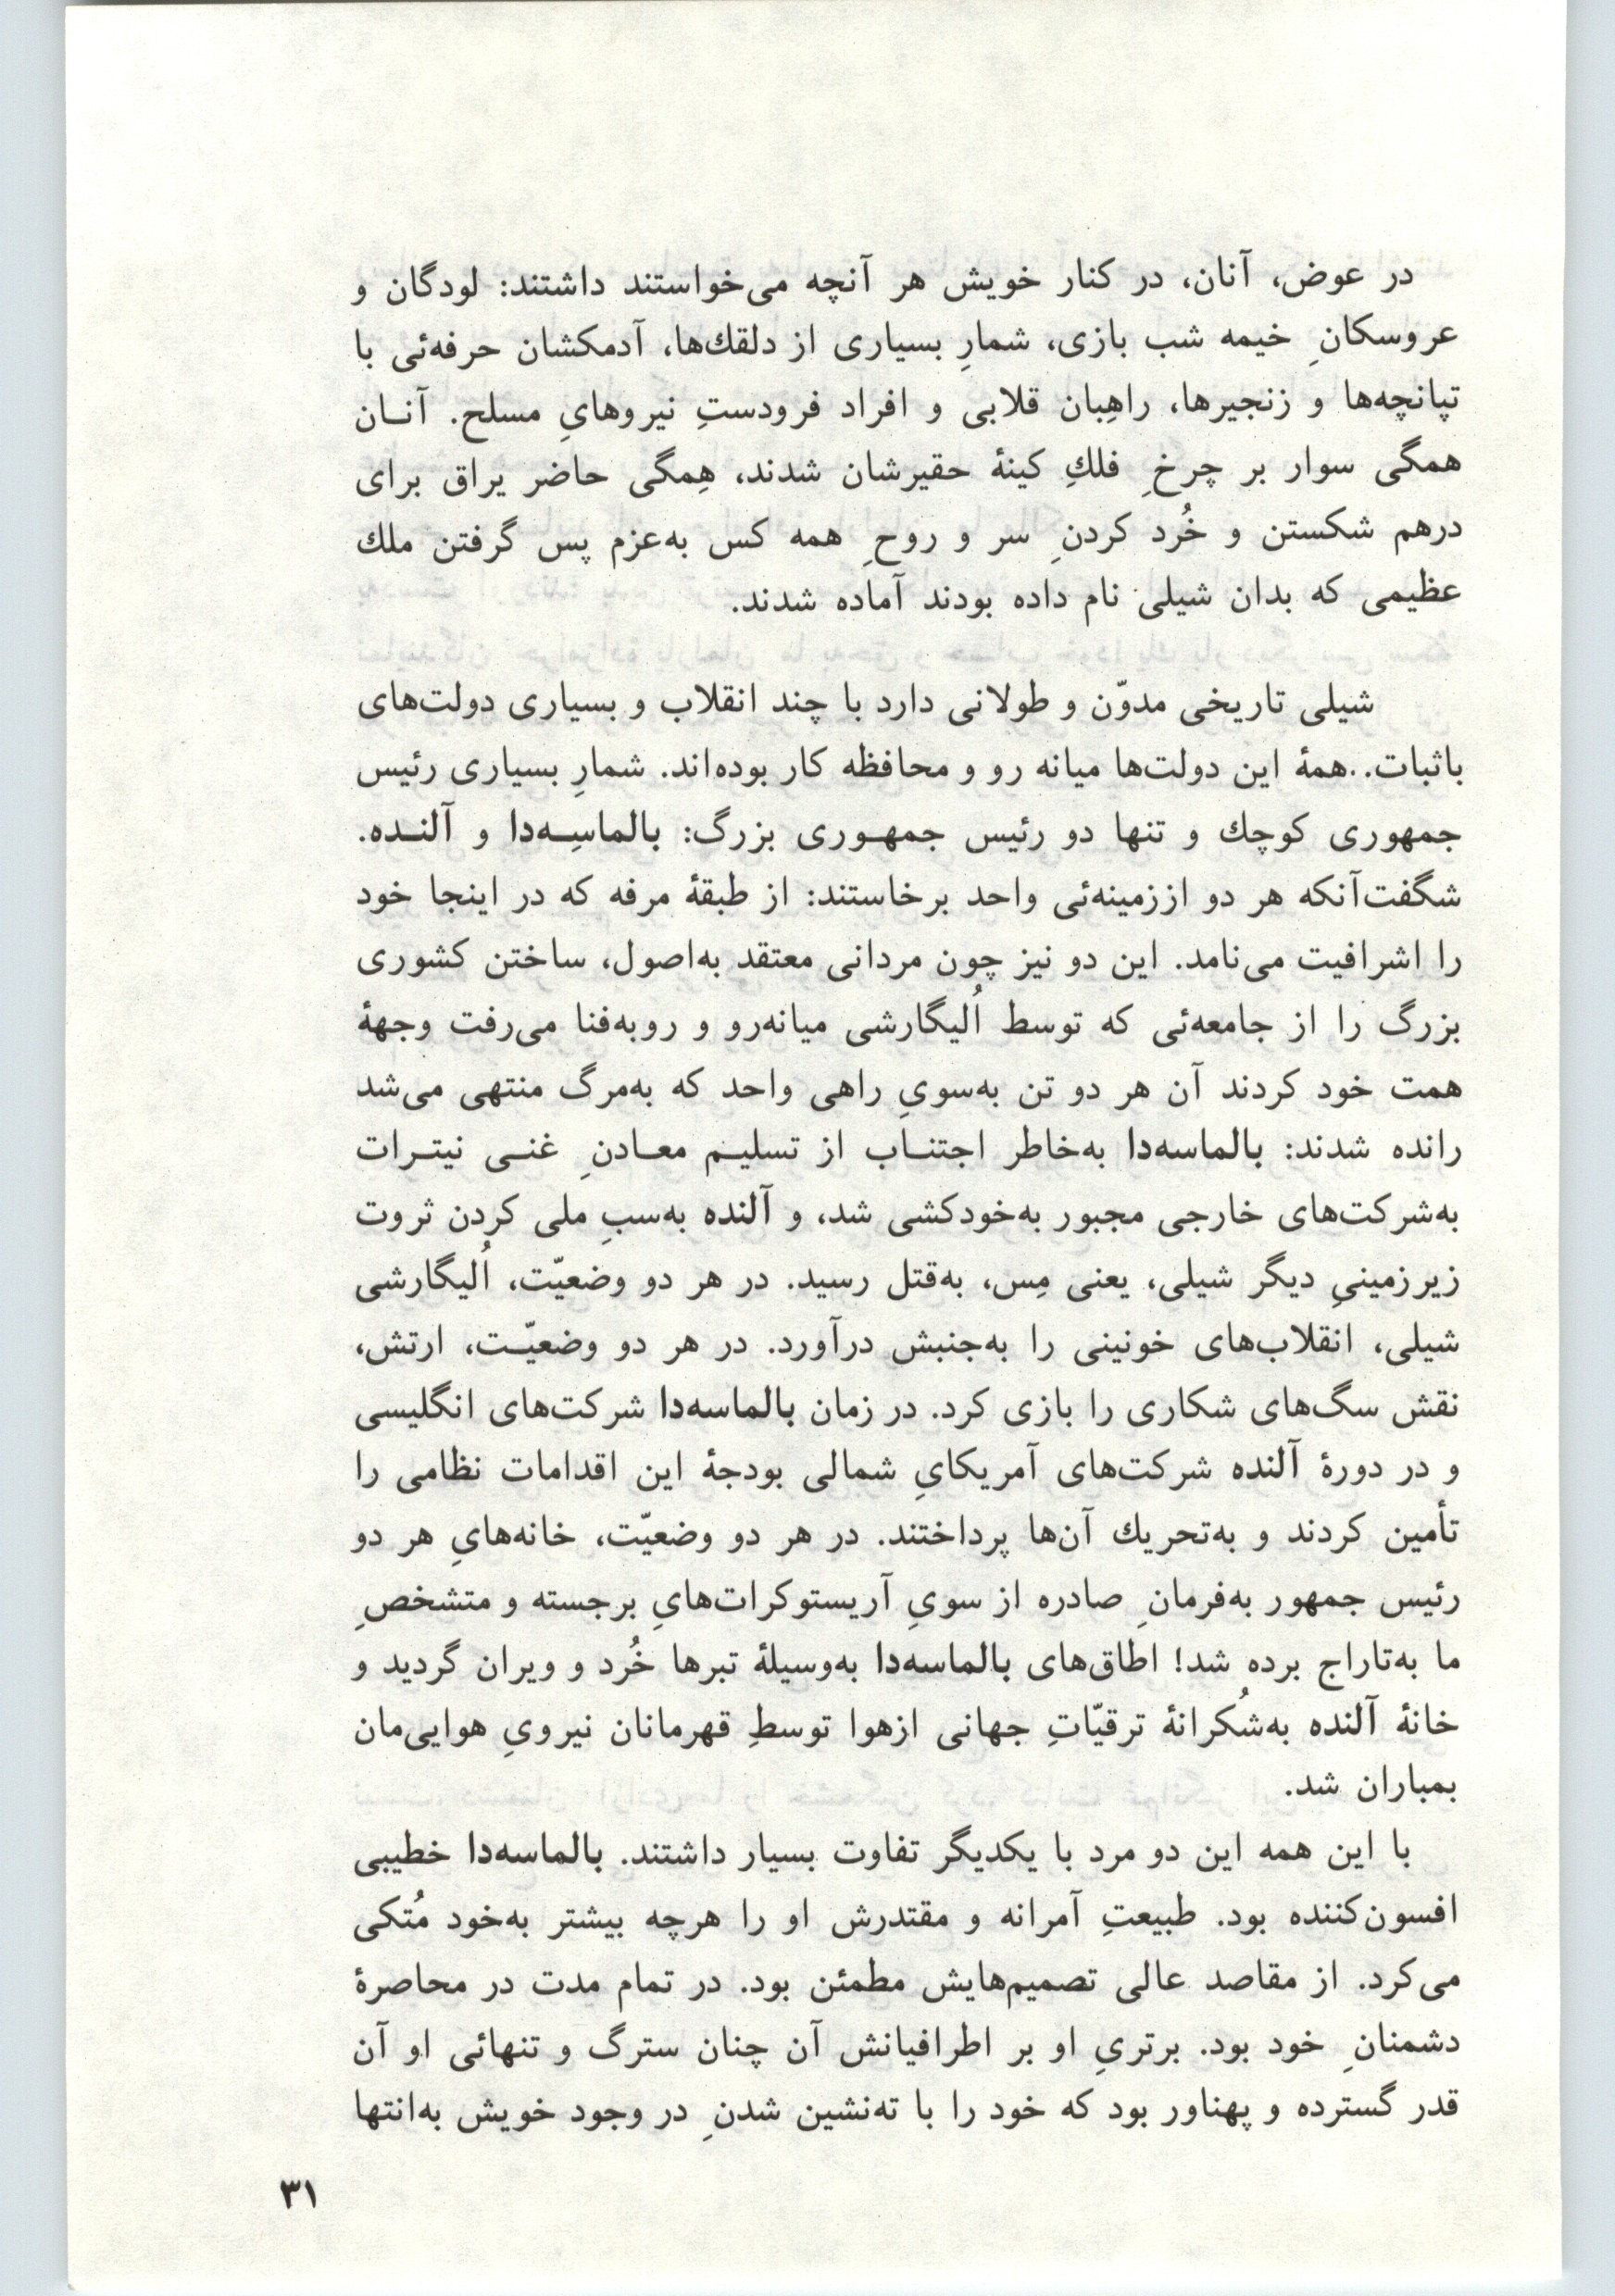 در عوض، آنان، در کنار خویش هر آنچه می‌خواستند داشتند: لودگان و
عروسکانِ خیمه شب بازی، شمارِ بسیاری از دلقك‌ها، آدمکشان حرفه‌ئی با
تپانچه‌ها و زنجیرها، راهِبان قلابی و افراد فرودستِ نیروهایِ مسلح. آنـان
همگی سوار بر چرخِ فلكِ کینهٔ حقیرشان شدند، هِمگی حاضر یراق برای
درهم شکستن و خُرد کردنِ سر و روحِ همه کس به‌عزم پس گرفتن ملك
عظیمی که بدان شیلی نام داده بودند آماده شدند.
شیلی تاریخی مدوّن و طولانی دارد با چند انقلاب و بسیاری دولت‌های
باثبات..همهٔ این دولت‌ها میانه رو و محافظه کار بوده‌اند. شمارِ بسیاری رئیس
جمهوری کوچك و تنها دو رئیس جمهـوری بزرگ: بالماسِـه‌دا و آلنـده.
شگفت‌آنکه هر دو اززمینه‌ئی واحد برخاستند: از طبقهٔ مرفه که در اینجا خود
را اشرافیت می‌نامد. این دو نیز چون مردانی معتقد به‌اصول، ساختن کشوری
بزرگ را از جامعه‌ئی که توسط اُلیگارشی میانه‌رو و روبه‌فنا می‌رفت وجههٔ
همت خود کردند آن هر دو تن به‌سویِ راهی واحد که به‌مرگ منتهی می‌شد
رانده شدند: بالماسه‌دا به‌خاطر اجتنـاب از تسلیـم معـادنِ غنـی نیتـرات
به‌شرکت‌های خارجی مجبور به‌خودکشی شد، و آلنده به‌سببِ ملی کردن ثروت
زیرزمینیِ دیگر شیلی، یعنی مِس، به‌قتل رسید. در هر دو وضعیّت، اُلیگارشی
شیلی، انقلاب‌های خونینی را به‌جنبش درآورد. در هر دو وضعیّـت، ارتش،
نقش سگ‌های شکاری را بازی کرد. در زمان بالماسه‌دا شرکت‌های انگلیسی
و در دورهٔ آلنده شرکت‌های آمریکایِ شمالی بودجهٔ این اقدامات نظامی را
تأمین کردند و به‌تحریك آن‌ها پرداختند. در هر دو وضعیّت، خانه‌هایِ هر دو
رئیس جمهور به‌فرمانِ صادره از سویِ آریستوکرات‌هایِ برجسته و متشخصِ
ما به‌تاراج برده شد! اطاق‌های بالماسه‌دا به‌وسیلهٔ تبرها خُرد و ویران گردید و
خانهٔ آلنده به‌شُکرانهٔ ترقیّاتِ جهانی ازهوا توسطِ قهرمانان نیرویِ هوایی‌مان
بمباران شد.
با این همه این دو مرد با یکدیگر تفاوت بسیار داشتند. بالماسه‌دا خطیبی
افسون‌کننده بود. طبیعتِ آمرانه و مقتدرش او را هرچه بیشتر به‌خود مُتکی
می‌کرد. از مقاصد عالی تصمیم‌هایش مطمئن بود. در تمام مدت در محاصرهٔ
دشمنانِ خود بود. برتریِ او بر اطرافیانش آن چنان سترگ و تنهائی او آن
قدر گسترده و پهناور بود که خود را با ته‌نشین شدنِ در وجود خویش به‌انتها
۳۱